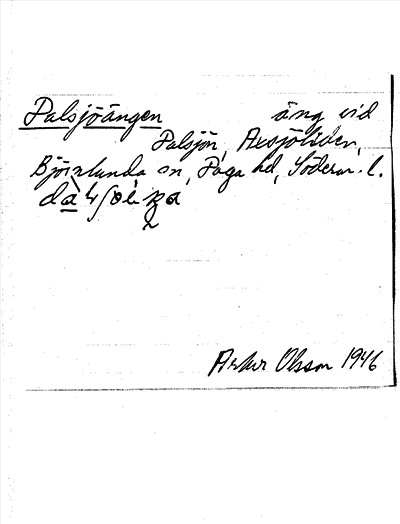 Dalsjöängen äng vid
Dalsjön, Axsjöliden,
Björnlunda sn, Daga hd, Söderm. l.
Artur Olsson 1946